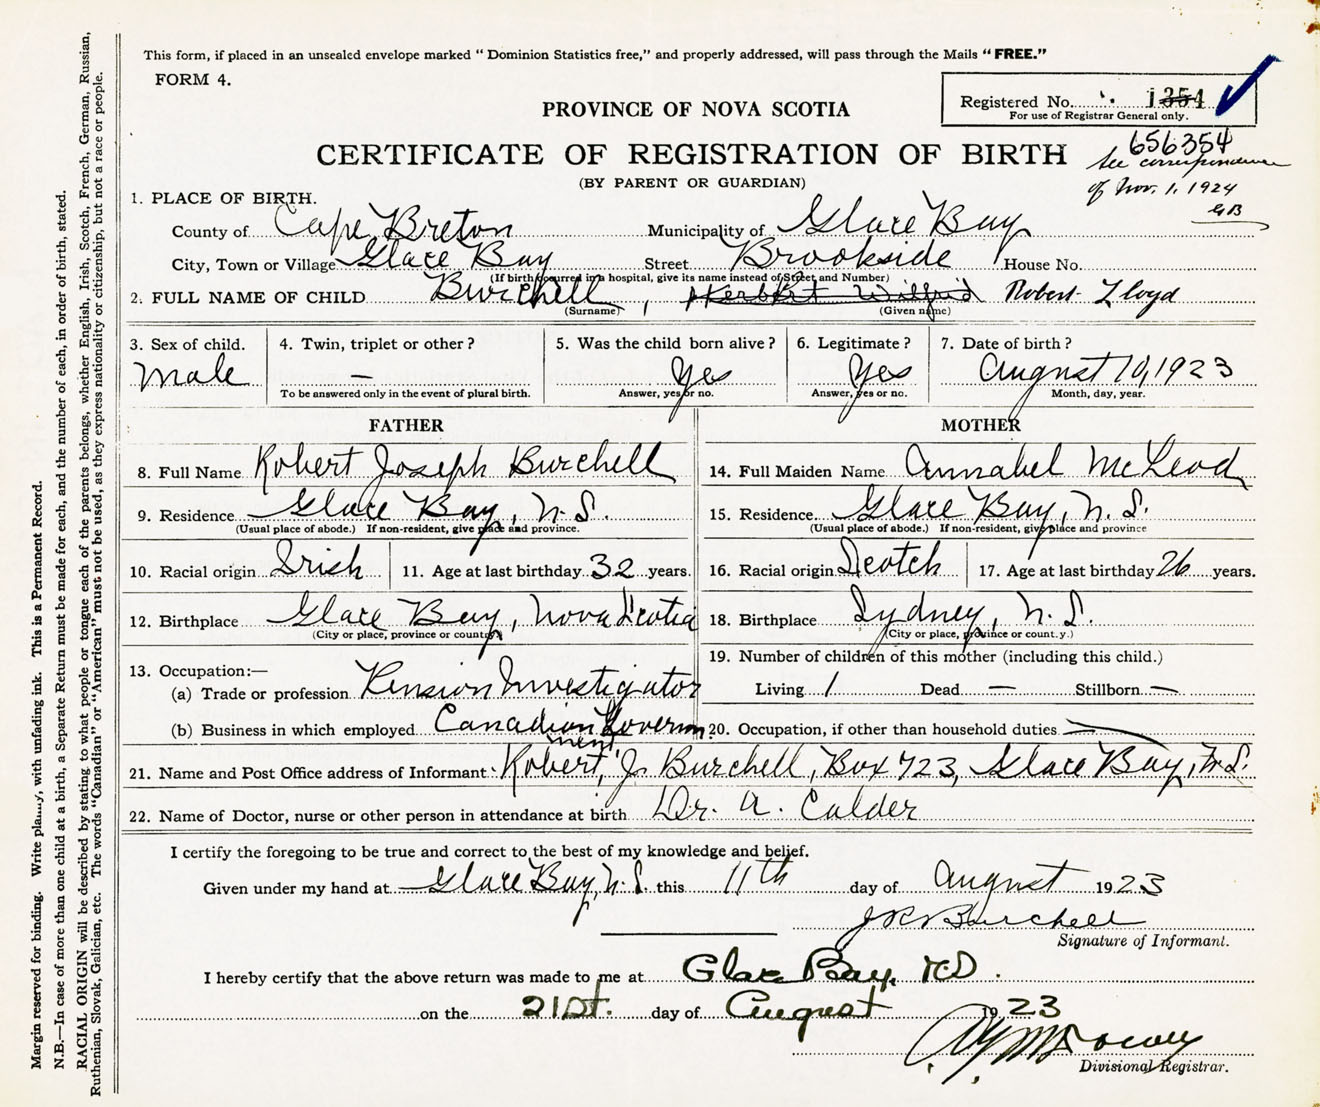 This form, if placed in an unsealed envelope marked “ Dominion Statistics free,” and properly addressed, will pass through the Mails “ FREE.”
FORM 4.
Registered No. 1354
For use of Registrar General only.
PROVINCE OF NOVA SCOTIA
656354
CERTIFICATE OF REGISTRATION OF BIRTH
See correspondence
of Nov. 1. 1924
GB
(BY PARENT OR GUARDIAN)
1. PLACE OF BIRTH.
County of Cape Breton Municipality of Glace Bay
City, Town or Village Glace Bay Street Brookside House No.
(If birth occurred in a hospital, give its name instead of Street and Number)
2. FULL NAME OF CHILD Burchell , Herbert Wilfrid Robert Lloyd
(Surname) (Given name)
3. Sex of child. Male
4. Twin, triplet or other ? —
To be answered only in the event of plural birth.
5. Was the child born alive? Yes
Answer, yes or no.
6. Legitimate ? Yes
Answer, yes or no.
7. Date of birth ? August 10, 1923
Month, day, year.
FATHER
8. Full Name Robert Joseph Burchell
9. Residence Glace Bay, N.S.
(Usual place of abode.) If non-resident, give place and province.
10. Racial origin Irish
11. Age at last birthday 32 years.
12. Birthplace Glace Bay, Nova Scotia
(City or place, province or country)
13. Occupation:—
(a) Trade or profession Pension Investigator
(b) Business in which employed Canadian Government
MOTHER
14. Full Maiden Name Annabel McLeod
15. Residence Glace Bay, N.S.
(Usual place of abode.) If non-resident, give place and province
16. Racial origin Scotch
17. Age at last birthday 26 years.
18. Birthplace Sydney, N.S.
(City or place, province or count.y.)
19. Number of children of this mother (including this child.)
Living 1 Dead — Stillborn —
20. Occupation, if other than household duties —
21. Name and Post Office address of Informant Robert J. Burchell, Box 723, Glace Bay, N.S.
22. Name of Doctor, nurse or other person in attendance at birth Dr. A. Calder
I certify the foregoing to be true and correct to the best of my knowledge and belief.
Given under my hand at Glace Bay, N.S. this 11th day of August 1923
Burchell
Signature of Informant.
I hereby certify that the above return was made to me at Glace Bay, N.S.
on the 21st. day of August 1923
Divisional Registrar.
Margin reserved for binding. Write plainly, with unfading ink. This is a Permanent Record.
N.B.—In case of more than one child at a birth, a Separate Return must be made for each, and the number of each, in order of birth, stated.
RACIAL ORIGIN will be described by stating to what people or tongue each of the parents belongs, whether English, Irish, Scotch, French, German, Russian,
Ruthenian, Slovak, Galician, etc. The words “Canadian” or “American” must not be used, as they express nationality or citizenship, but not a race or people.